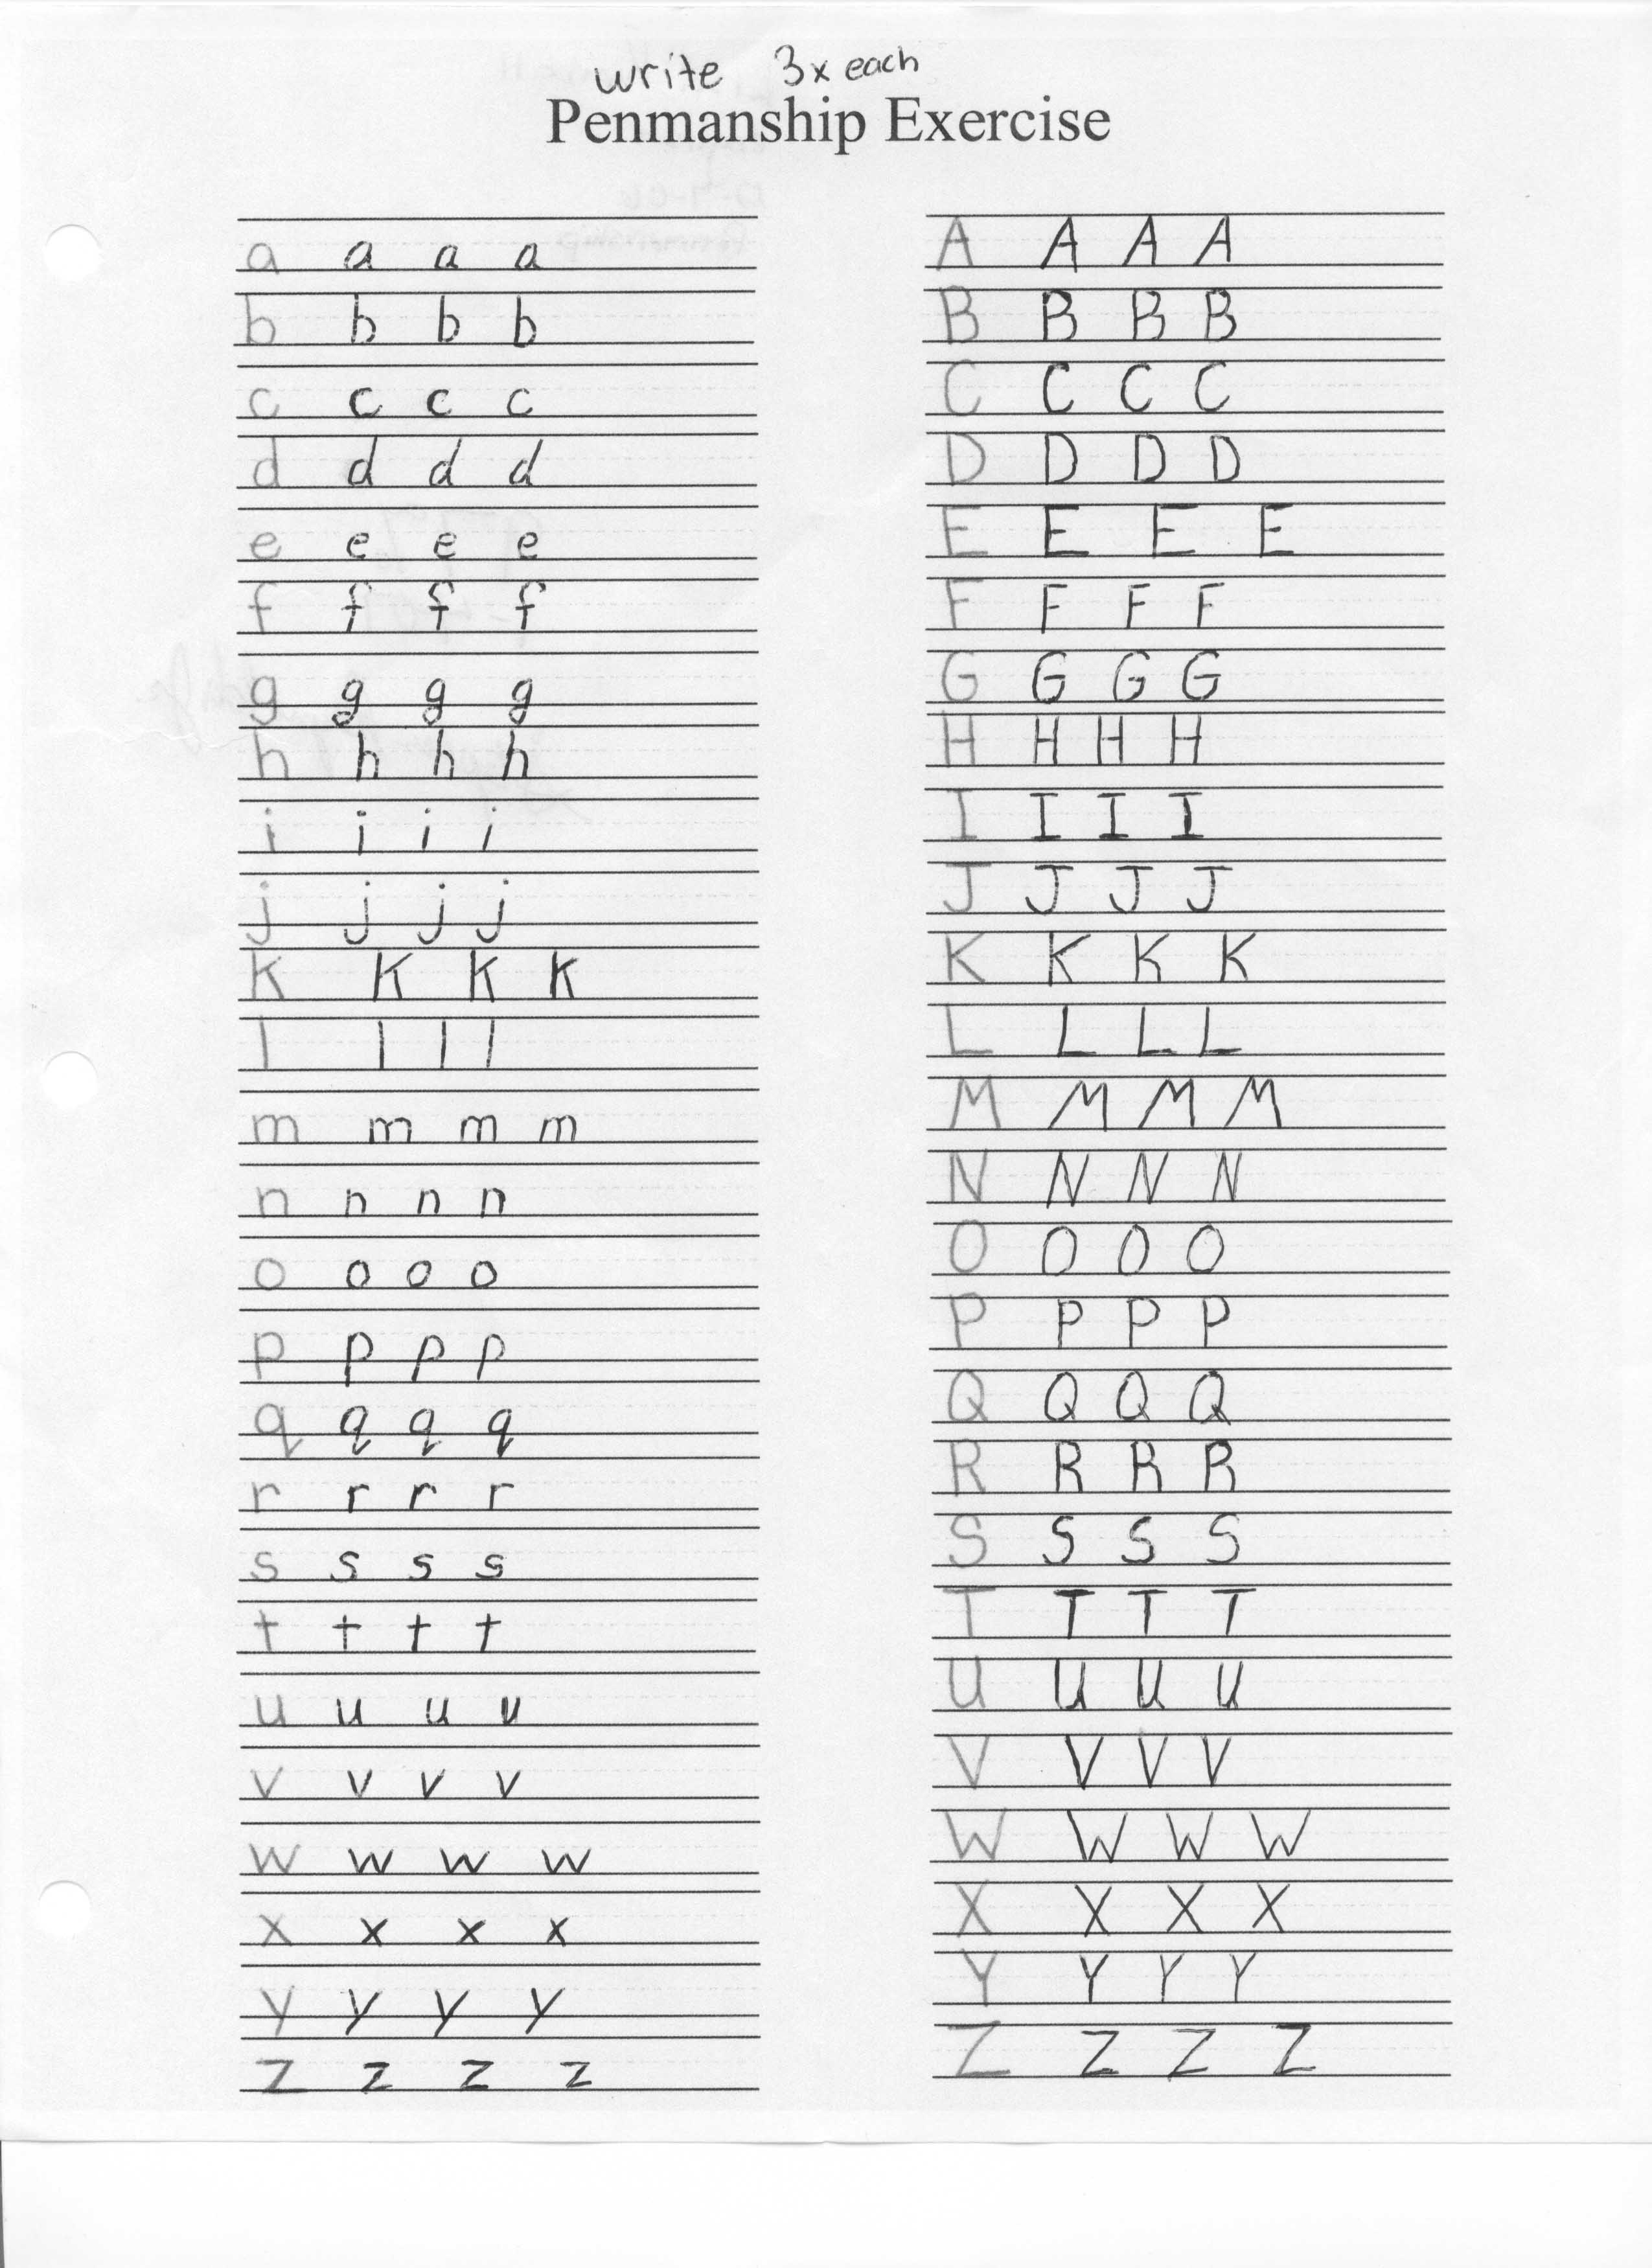 write 3x each
Penmanship Exercise
a a a a
b b b b
c c c c
d d d d
e e e e
f f f f
g g g g
h h h h
i i i i
j j j j
K K K K
l l l l
m m m m
n n n n
o o o o
p p p p
q q q q
r r r r
s s s s
t t t t
u u u u
v v v v
w w w w
x x x x
y y y y
z z z z
A A A A
B B B B
C C C C
D D D D
E E E E
F F F F
G G G G
H H H H
I I I I
J J J J
K K K K
L L L L
M M M M
N N N N
O O O O
P P P P
Q Q Q Q
R R R R
S S S S
T T T T
U U U U
V V V V
W W W W
X X X X
Y Y Y Y
Z Z Z Z